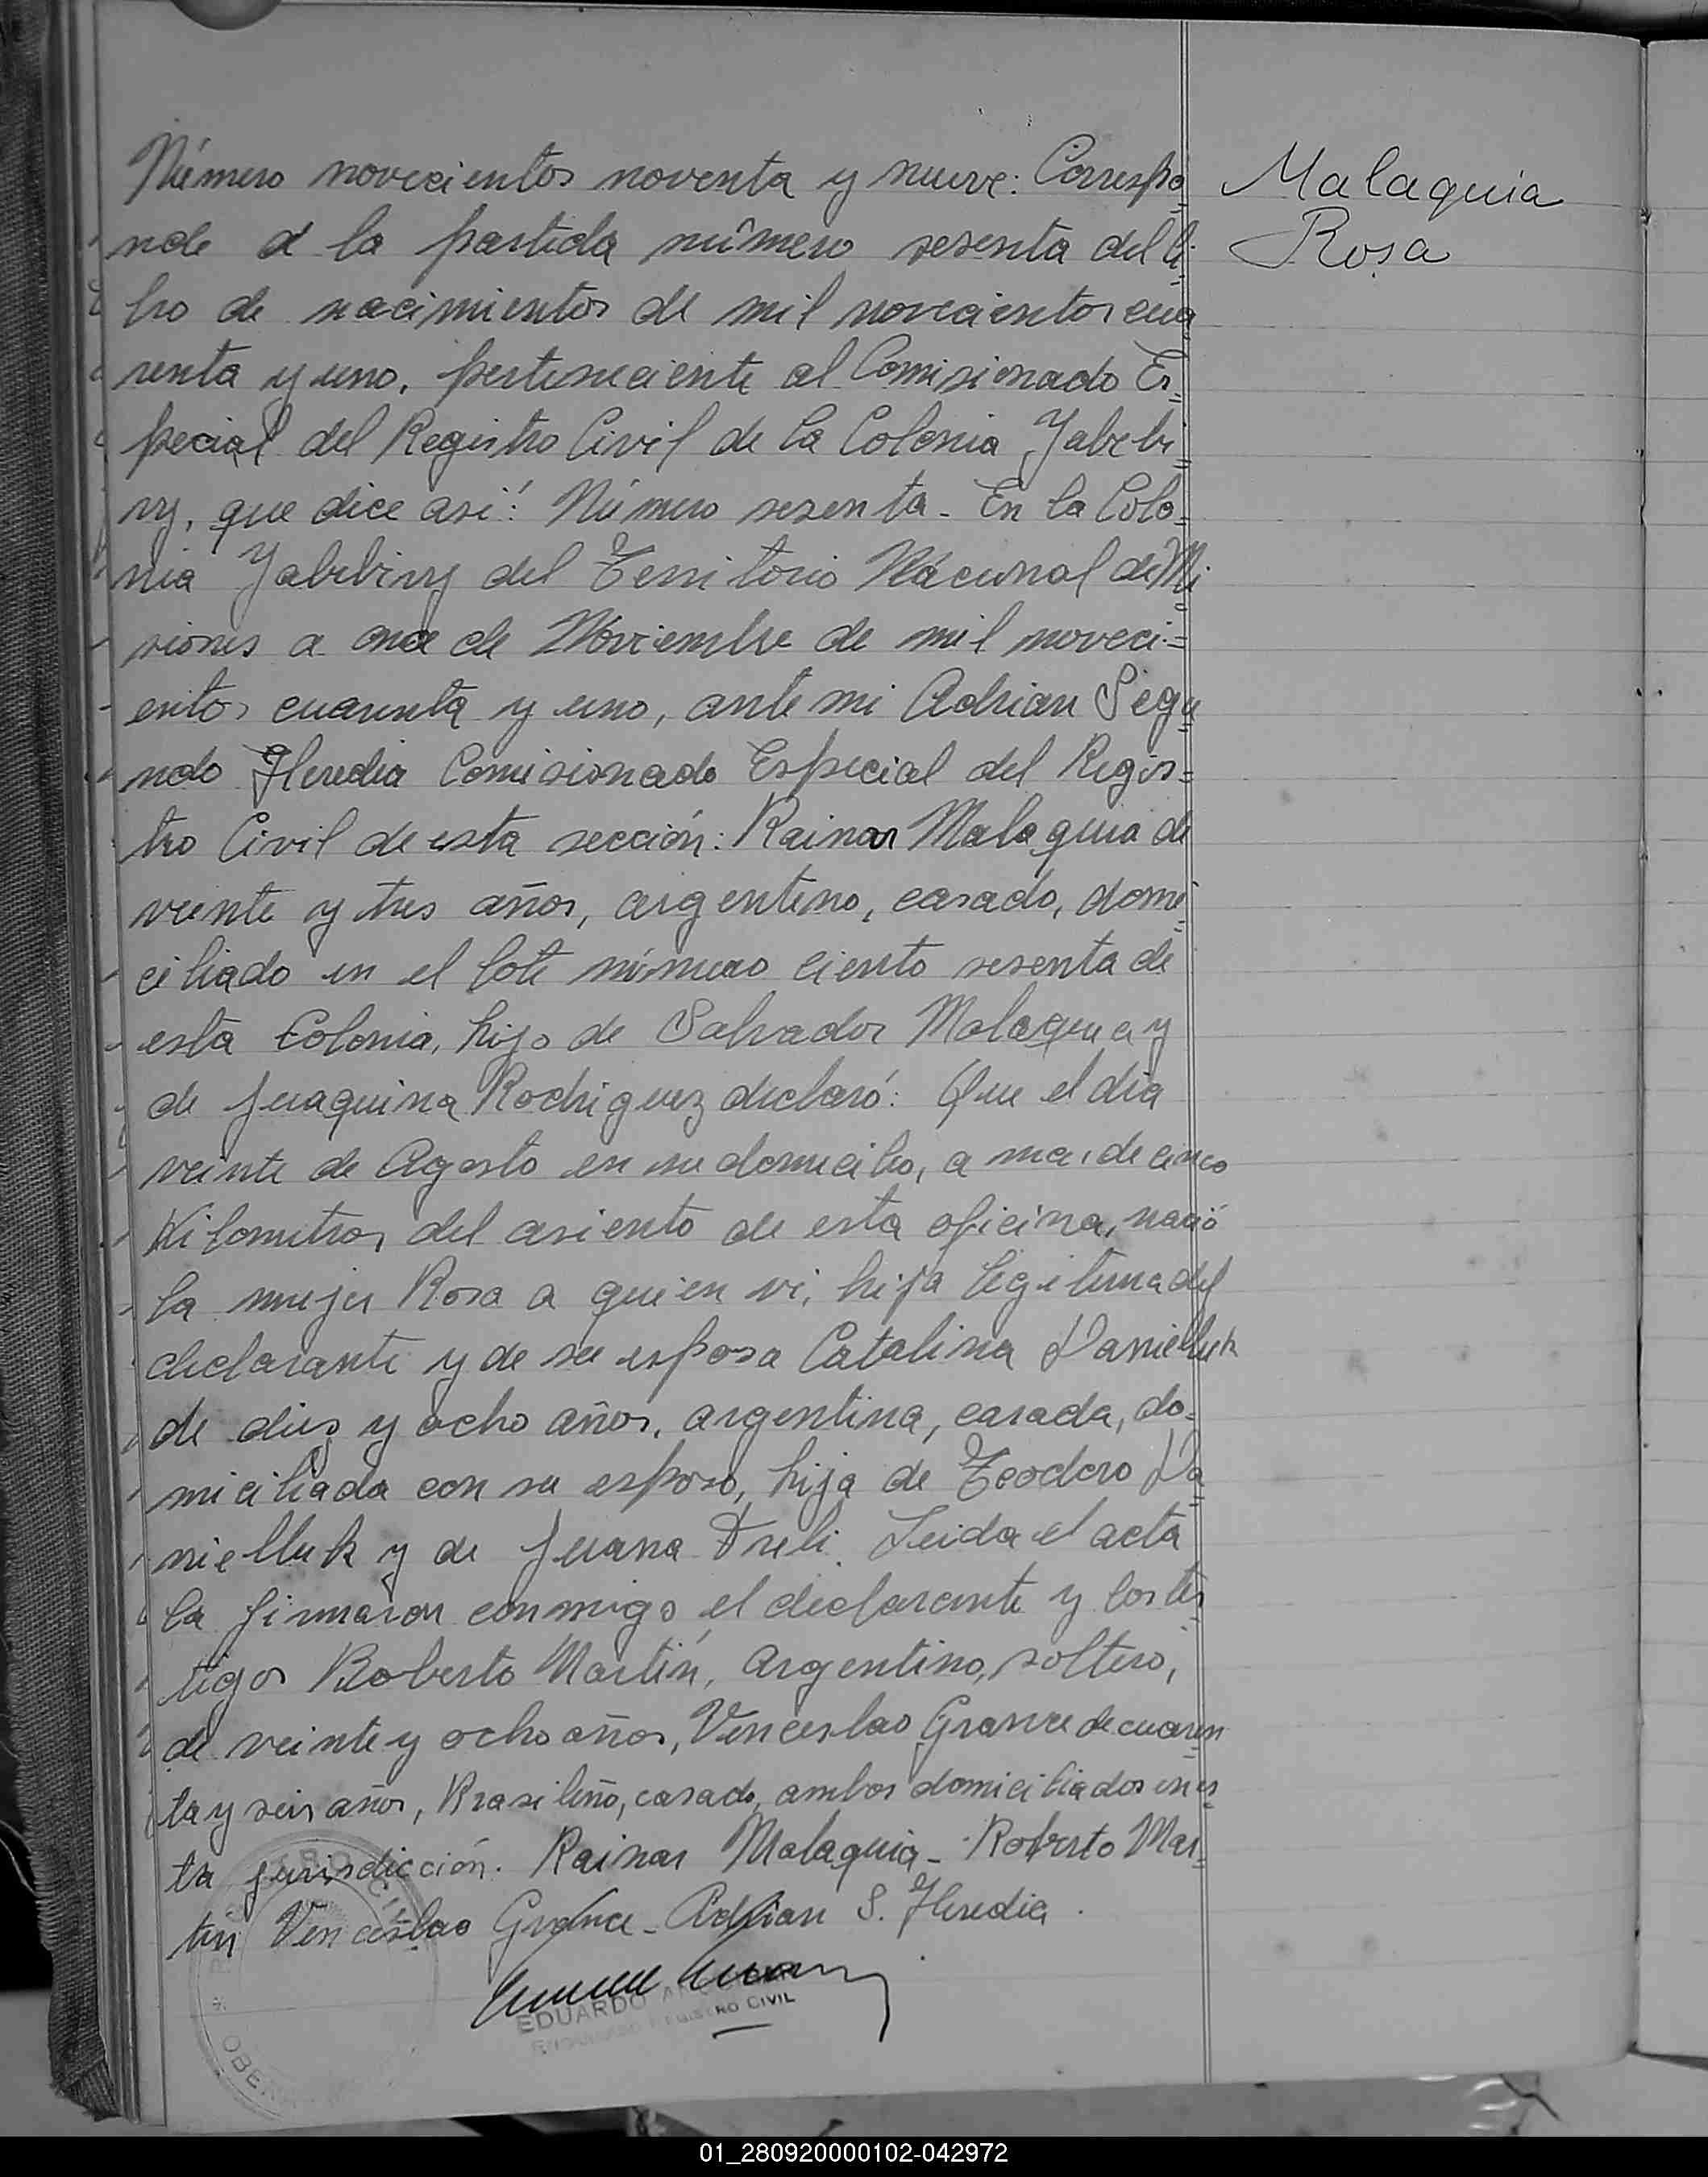 Número novecientos noventa y nueve: Correspo=
nde a la partida número sesenta del li=
bro de nacimientos de mil novecientos cua
renta y uno, perteneciente al Comisionado Es=
pecial del Registro Civil de la Colonia Yabebi=
ry, que dice así: Número sesenta - En la Colo=
nia Yabebiry del Territorio Nacional de Mi=
siones a once de Noviembre de mil noveci=
entos cuarenta y uno, ante mi Adrian Segu=
ndo Heredia Comisionado Especial del Regis=
tro Civil de esta sección: Rainar Malaquia de
veinte y tres años, argentino, casado, domi=
ciliado en el lote número ciento sesenta de
esta Colonia, hijo de Salvador Malaquia y
de Juaquina Rodriguez declaró: Que el dia
veinte de Agosto en su domicilio, a mas de cinco
Kilometros del asiento de esta oficina, nació
la mujer Rosa a quien vi, hija legitima del
declarante y de su esposa Catalina Danielluk
de dies y ocho años, argentina, casada, do=
miciliada con su esposo, hija de Teodoro Da=
nielluk y de Juana Leida el acta
la firmaron conmigo el declarante y los tes=
tigos Roberto Martín, argentino, soltero,
de veinte y ocho años, Venceslao Grance de cuaren=
ta y seis años, Brasileño, casado, ambos domiciliados en es=
ta jurisdicción. Rainar Malaquia - Roberto Mar=
tin Venceslao Grance - Adrian S. Heredia.
EDUARDO
REGISTRO CIVIL
Malaquia
Rosa
01_280920000102-042972